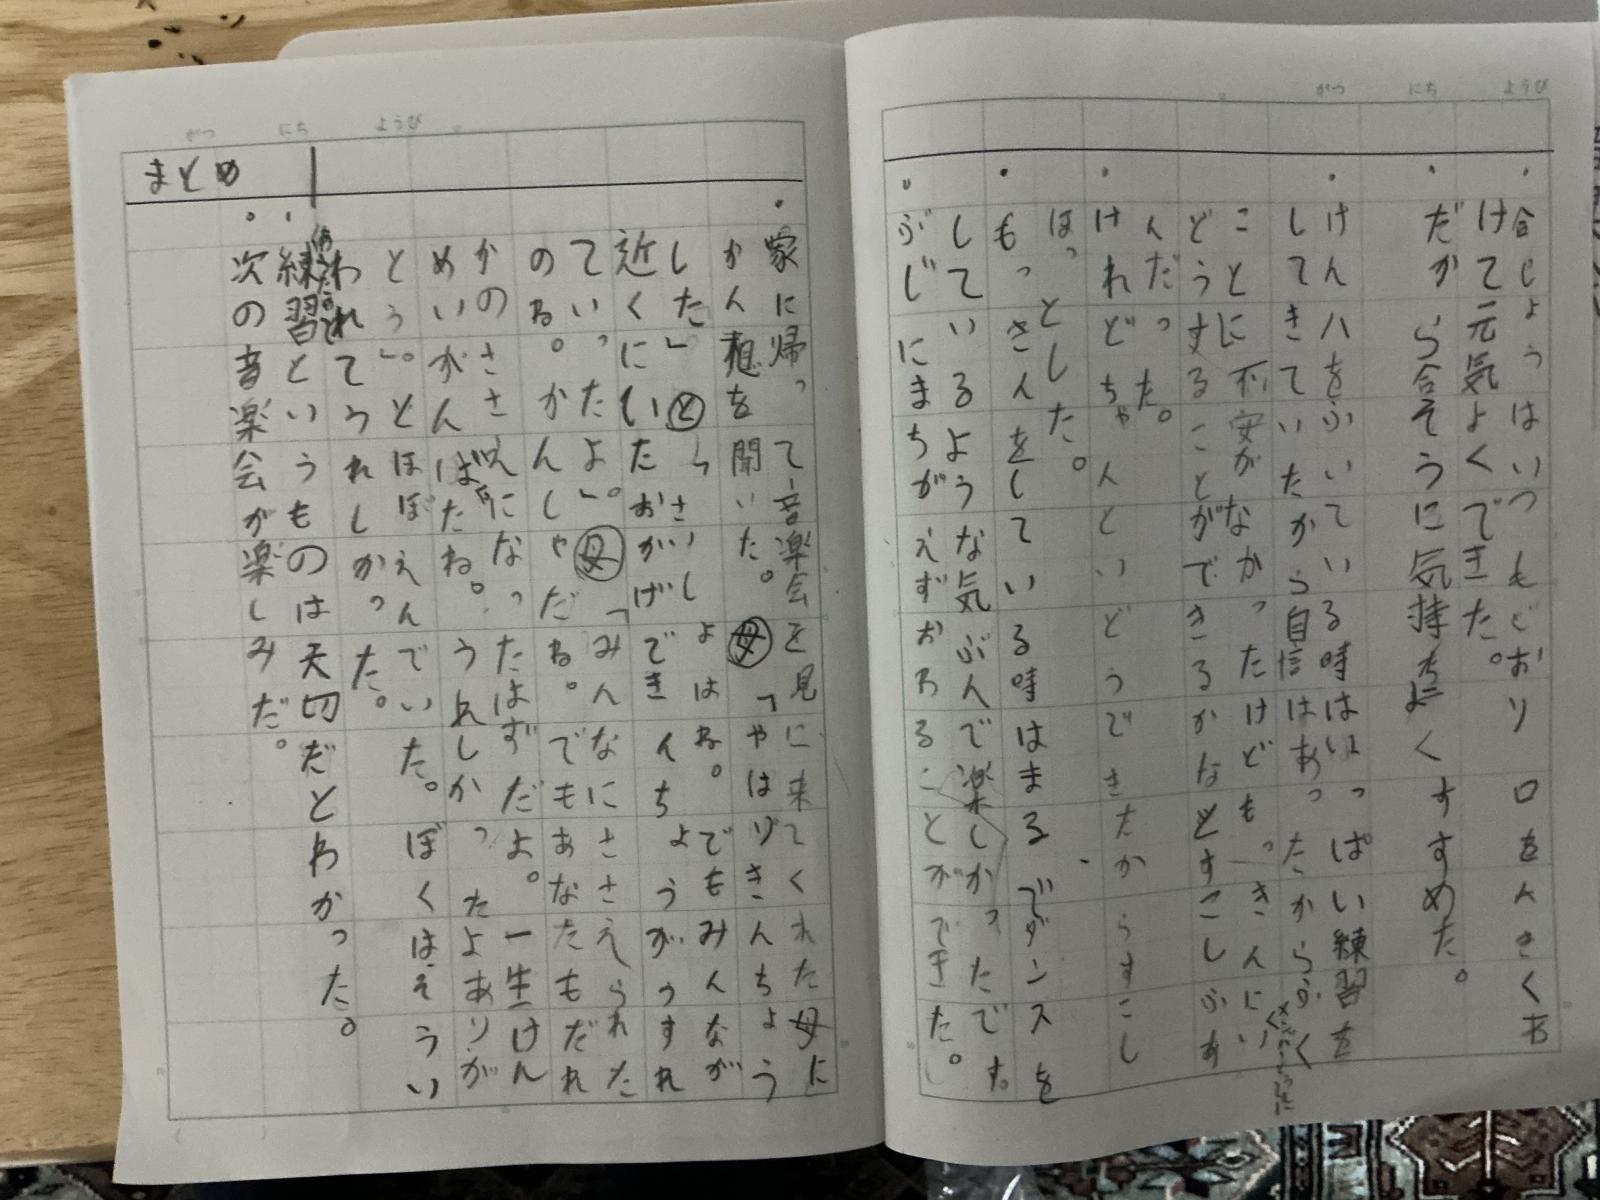 がつ にち ようび
合しょうはいつもどおり口を大きくあ
けて元気よくできた。
だから合そうに気持ちよくすすめた。
けんハをふいている時はいっぱい練習を
してきていたから自信はあったからふく
ことに不安がなかったけどもっきんにいく
どうすることができるかなとすこしふあ
んだった。
けれどちゃんといどうできたからすこし
ほっとした。
もっきんをしている時はまるでダンスを
しているような気ぶんで楽しかったです。
ぶじにまちがえずおわることができた。
がつ にち ようび
家に帰って音楽会を見に来てくれた母に
かん想を聞いた。母「やはりきんちょう
した」と「さいしょはね。でもみんなが
近くにいたおかげできんちょうがうすれ
ていったよ」。母「みんなにささえられた
のね。かんしゃだね。でもあなたもだれ
かのささえになったはずだよ。一生けん
めいがんばったね。うれしかったよありが
とう」。とほぼえんでいた。ぼくはそうい
われてうれしかった。
まとめ
練習というものは大切だとわかった。
次の音楽会が楽しみだ。